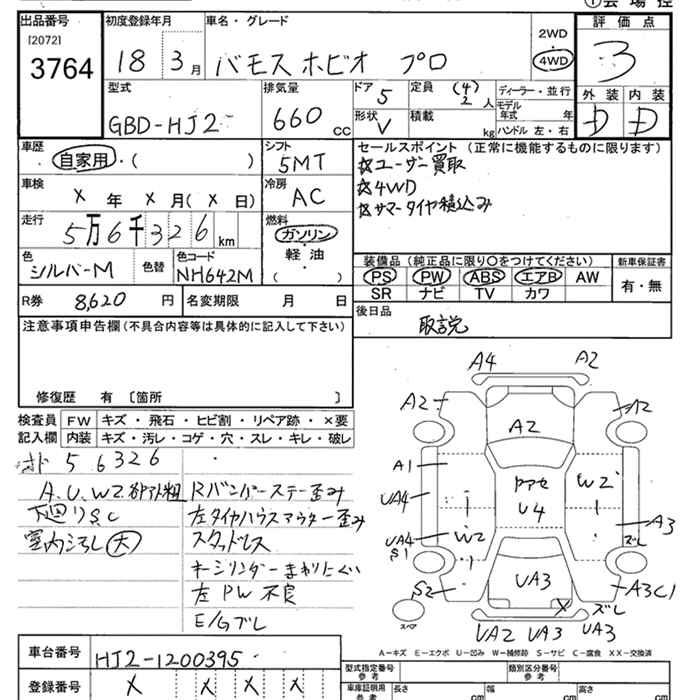 ①会場控
出品番号 [2072] 3764
初度登録年月 18 3月
車名・グレード バモス ホビオ プロ
2WD 4WD
評価点 3
型式 GBD-HJ2
排気量 660 cc
ドア 5
定員 (4) 2 人
形状 V
積載 kg
ディーラー・並行
モデル年式 年
ハンドル 左・右
外装 D 内装 D
車歴 自家用・( )
シフト 5MT
車検 X年X月(X日)
冷房 AC
走行 5万6千326km
燃料 ガソリン・軽油・( )
色 シルバーM 色替
色コード NH642M
R券 8,620円
名変期限 月 日
セールスポイント(正常に機能するものに限ります)
☆ユーザー買取
☆4WD
☆サマータイヤ積込み
装備品(純正品に限り○をつけてください) 新車保証書
PS PW ABS エアB AW 有・無
SR ナビ TV カワ
後日品 取説
注意事項申告欄(不具合内容等は具体的に記入して下さい)
修復歴 有 [箇所 ]
検査員記入欄
FW キズ・飛石・ヒビ割・リペア跡・×要
内装 キズ・汚レ・コゲ・穴・スレ・キレ・破レ
オド 56326
A.U.W2
下廻りS.C
室内ヨゴレ 大
Rバンパーステー歪み
左タイヤハウスアウター歪み
スタッドレス
キーシリンダーまわりにくい
左PW不良
E/Gブレ
A4 A2
A2 A2
A2
A1
UA4
W2
U4
UA4
S1
W2
A3
ズレ
S2
UA3
A3C1
X
ズレ
UA2 UA3 UA3
スペア
A-キズ E-エクボ U-凹み W-補修跡 S-サビ C-腐食 XX-交換済
車台番号 HJ2-1200395
登録番号 X X X X
型式指定番号 参考
類別区分番号 参考
車庫証明用 参考
長さ cm 幅 cm 高さ cm